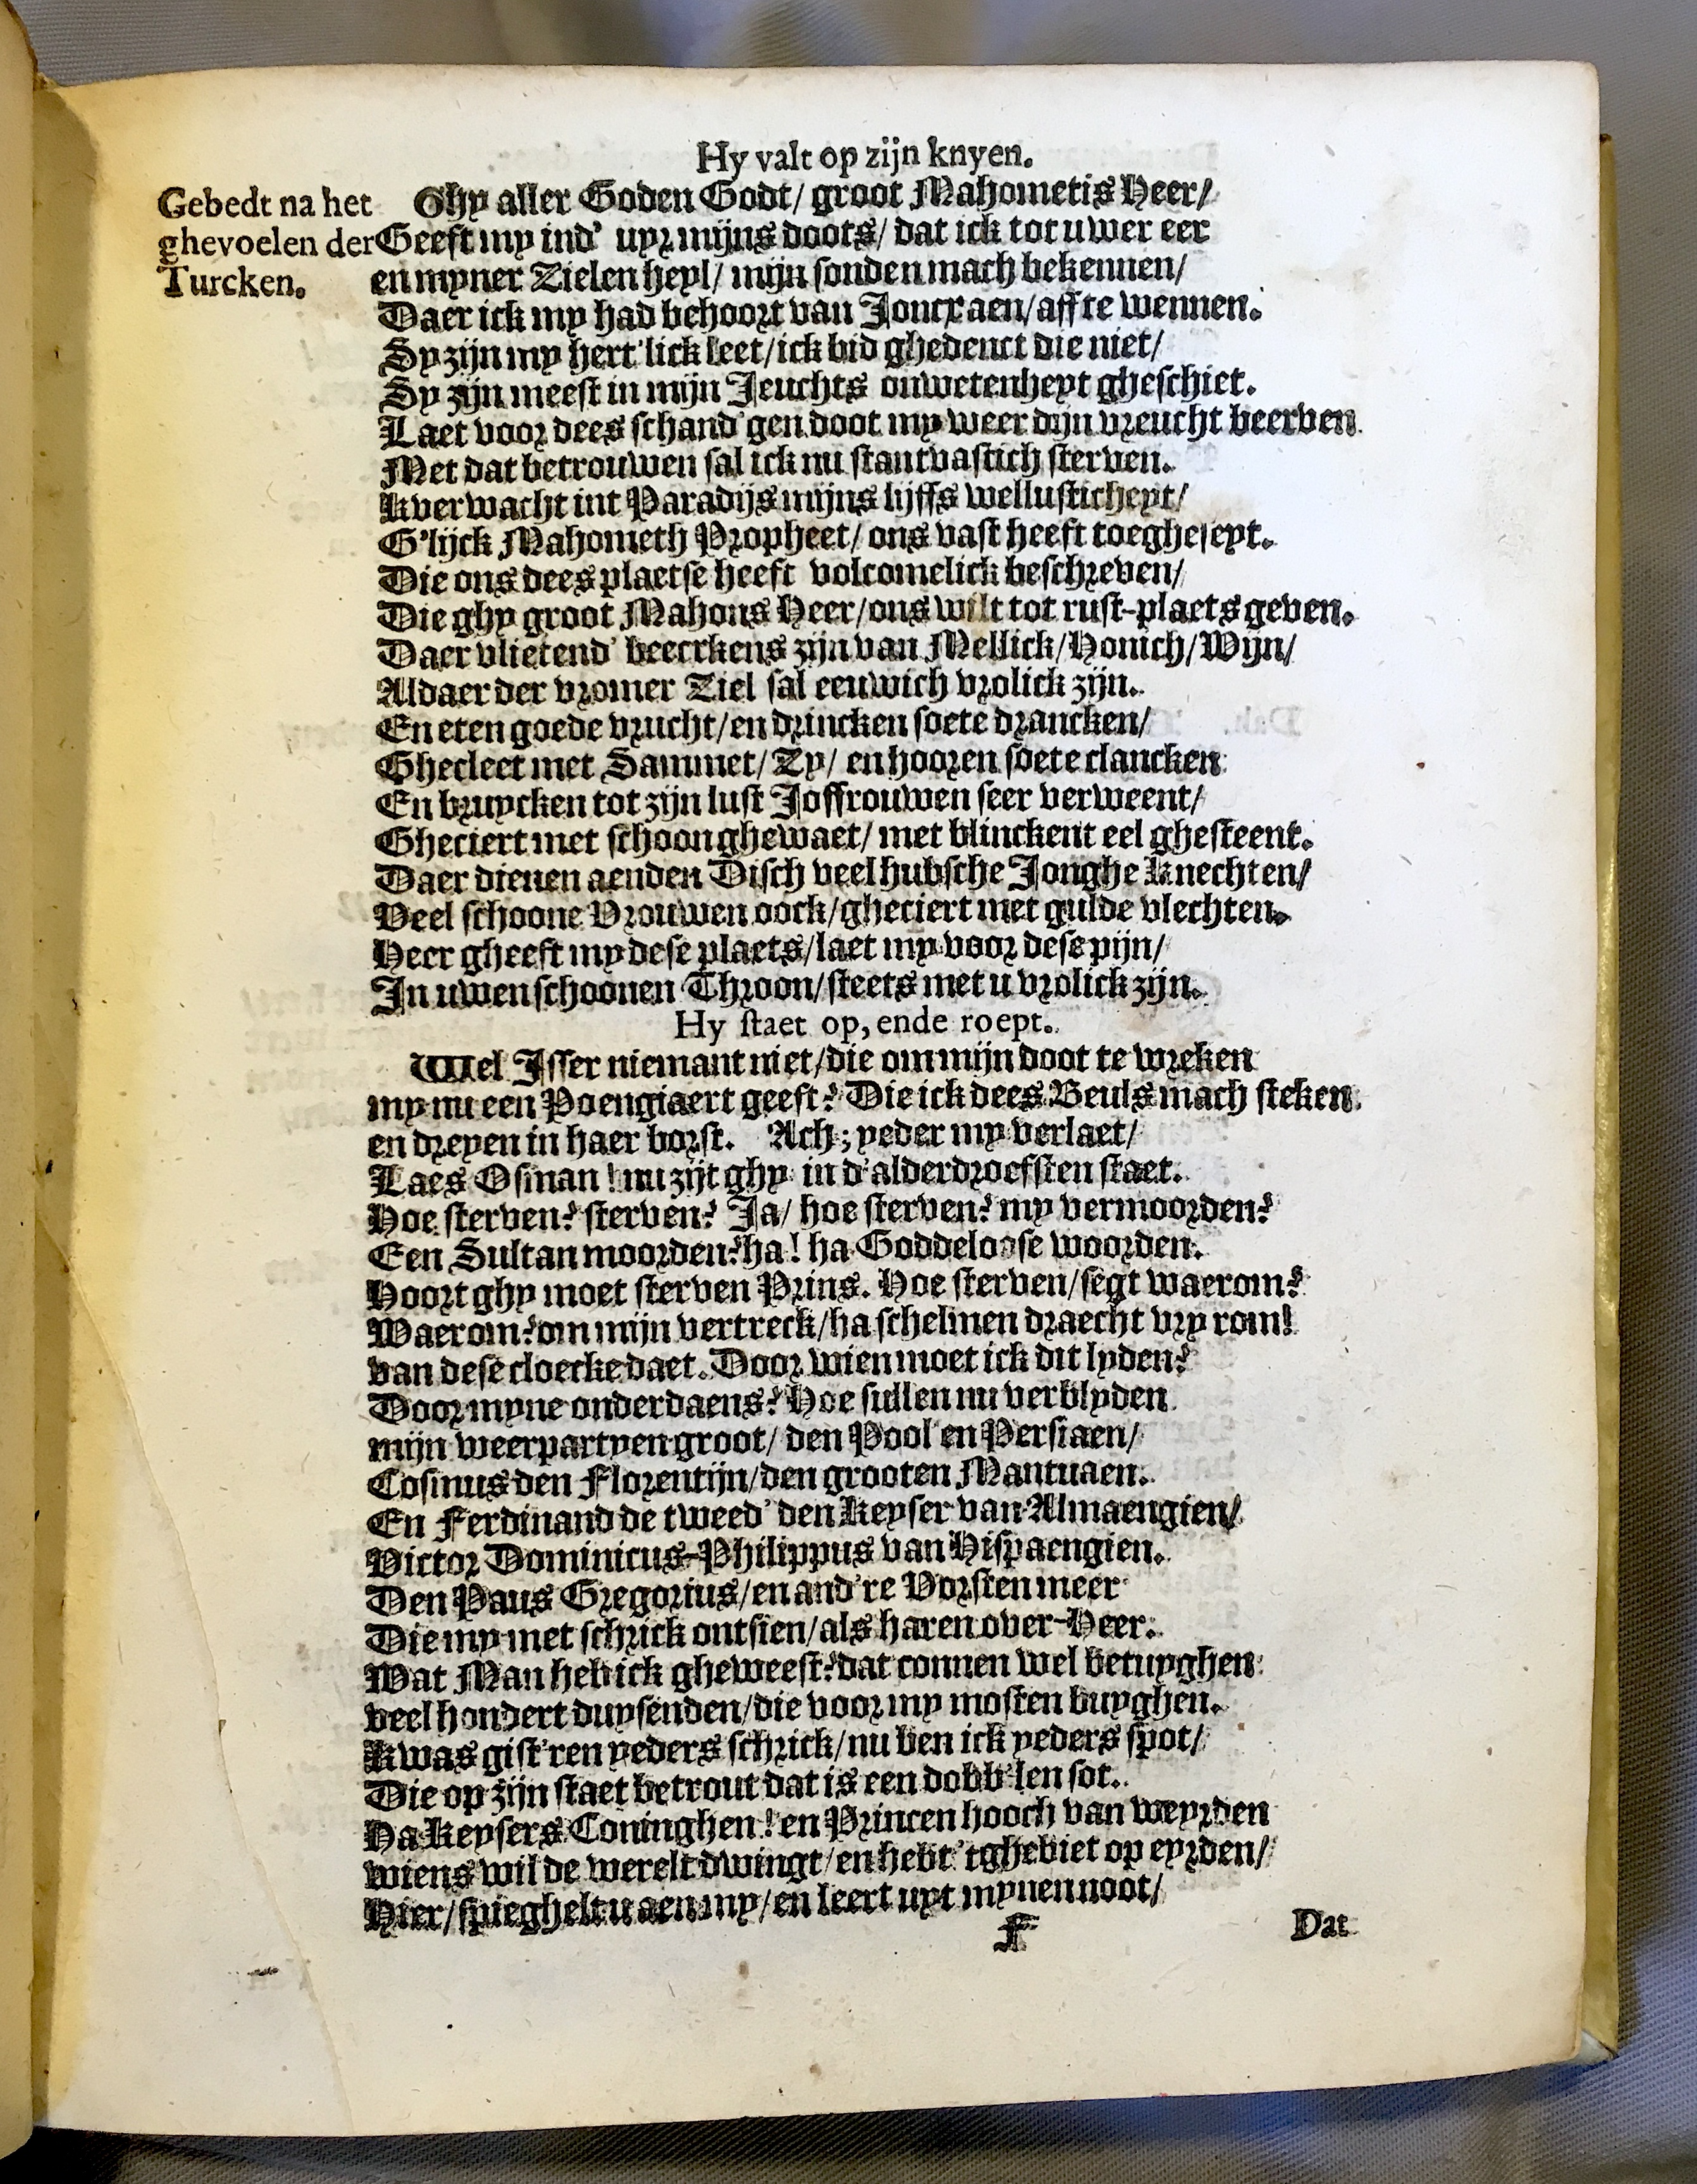 Hy valt op zijn knyen.
Gebedt na het
ghevoelen der
Turcken.
Ghy aller Goden Godt/ groot Mahometis Heer/
Geeft my ind' uyr mijns doots/ dat ick tot uwer eer
en myner Zielen heyl/ mijn sonden mach bekennen/
Daer ick my had behoort van Joncx aen/ aff te wennen.
Sy zijn my hert'lick leet/ ick bid ghedenct die niet/
Sy zijn meest in mijn Jeuchts onwetenheyt gheschiet.
Laet voor dees schand'gen doot my weer dijn vreucht beerven
Met dat betrouwen sal ick nu stantvastich sterven.
Kverwacht int Paradijs mijns lijffs wellusticheyt/
G'lijck Mahometh Propheet/ ons vast heeft toegheseyt.
Die ons dees plaetse heeft volcomelick beschreven/
Die ghy groot Mahons Heer/ ons wilt tot rust-plaets geven.
Daer vlietend' beeckens zijn van Mellick/ Honich/ Wijn/
Aldaer der vromer Ziel sal eeuwich vrolick zijn.
En eten goede vrucht/ en drincken soete drancken/
Ghecleet met Sammet/ Zy/ en hooren soete clancken
En bruycken tot zijn lust Joffrouwen seer verweent/
Gheciert met schoon ghewaet/ met blinckent eel ghesteent.
Daer dienen aenden Disch veel hubsche Jonghe Knechten/
Veel schoone Vrouwen oock/ gheciert met gulde vlechten.
Heer gheeft my dese plaets/ laet my voor dese pijn/
In uwen schoonen Throon/ steets met u vrolick zijn.
Hy staet op, ende roept.
Wel Isser niemant niet/ die om mijn doot te wreken
my nu een Poengiaert geeft? Die ick dees Beuls mach steken
en dreyen in haer borst. Ach; yeder my verlaet/
Laes Osman! nu zijt ghy in d'alderdroefsten staet.
Hoe sterven? sterven? Ja/ hoe sterven? my vermoorden?
Een Sultan moorden? ha! ha Goddeloose woorden.
Hoort ghy moet sterven Prins. Hoe sterven/ segt waerom?
Waerom? om mijn vertreck/ ha schelmen draecht vry rom!
van dese cloecke daet. Door wien moet ick dit lyden?
Door myne onderdaens? Hoe sullen nu verblyden
mijn weerpartyen groot/ den Pool en Persiaen/
Cosmus den Florentijn/ den grooten Mantuaen.
En Ferdinand de tweed' den Keyser van Almaengien/
Victor Dominicus-Philippus van Hispaengien.
Den Paus Gregorius/ en and're Vorsten meer
Die my met schrick ontsien/ als haren over-Heer.
Wat Man heb ick gheweest? dat connen wel betuyghen
veel hondert duysenden/ die voor my mosten buyghen.
Kwas gist'ren yeders schrick/ nu ben ick yeders spot/
Die op zijn staet betrout dat is een dobb'len sot.
Ha Keysers Coninghen! en Princen hooch van weyrden
wiens wil de werelt dwingt/ en hebt 'tghebiet op eyrden/
Hier/ spieghelt u aen my/ en leert uyt mynen noot/
F
Dat